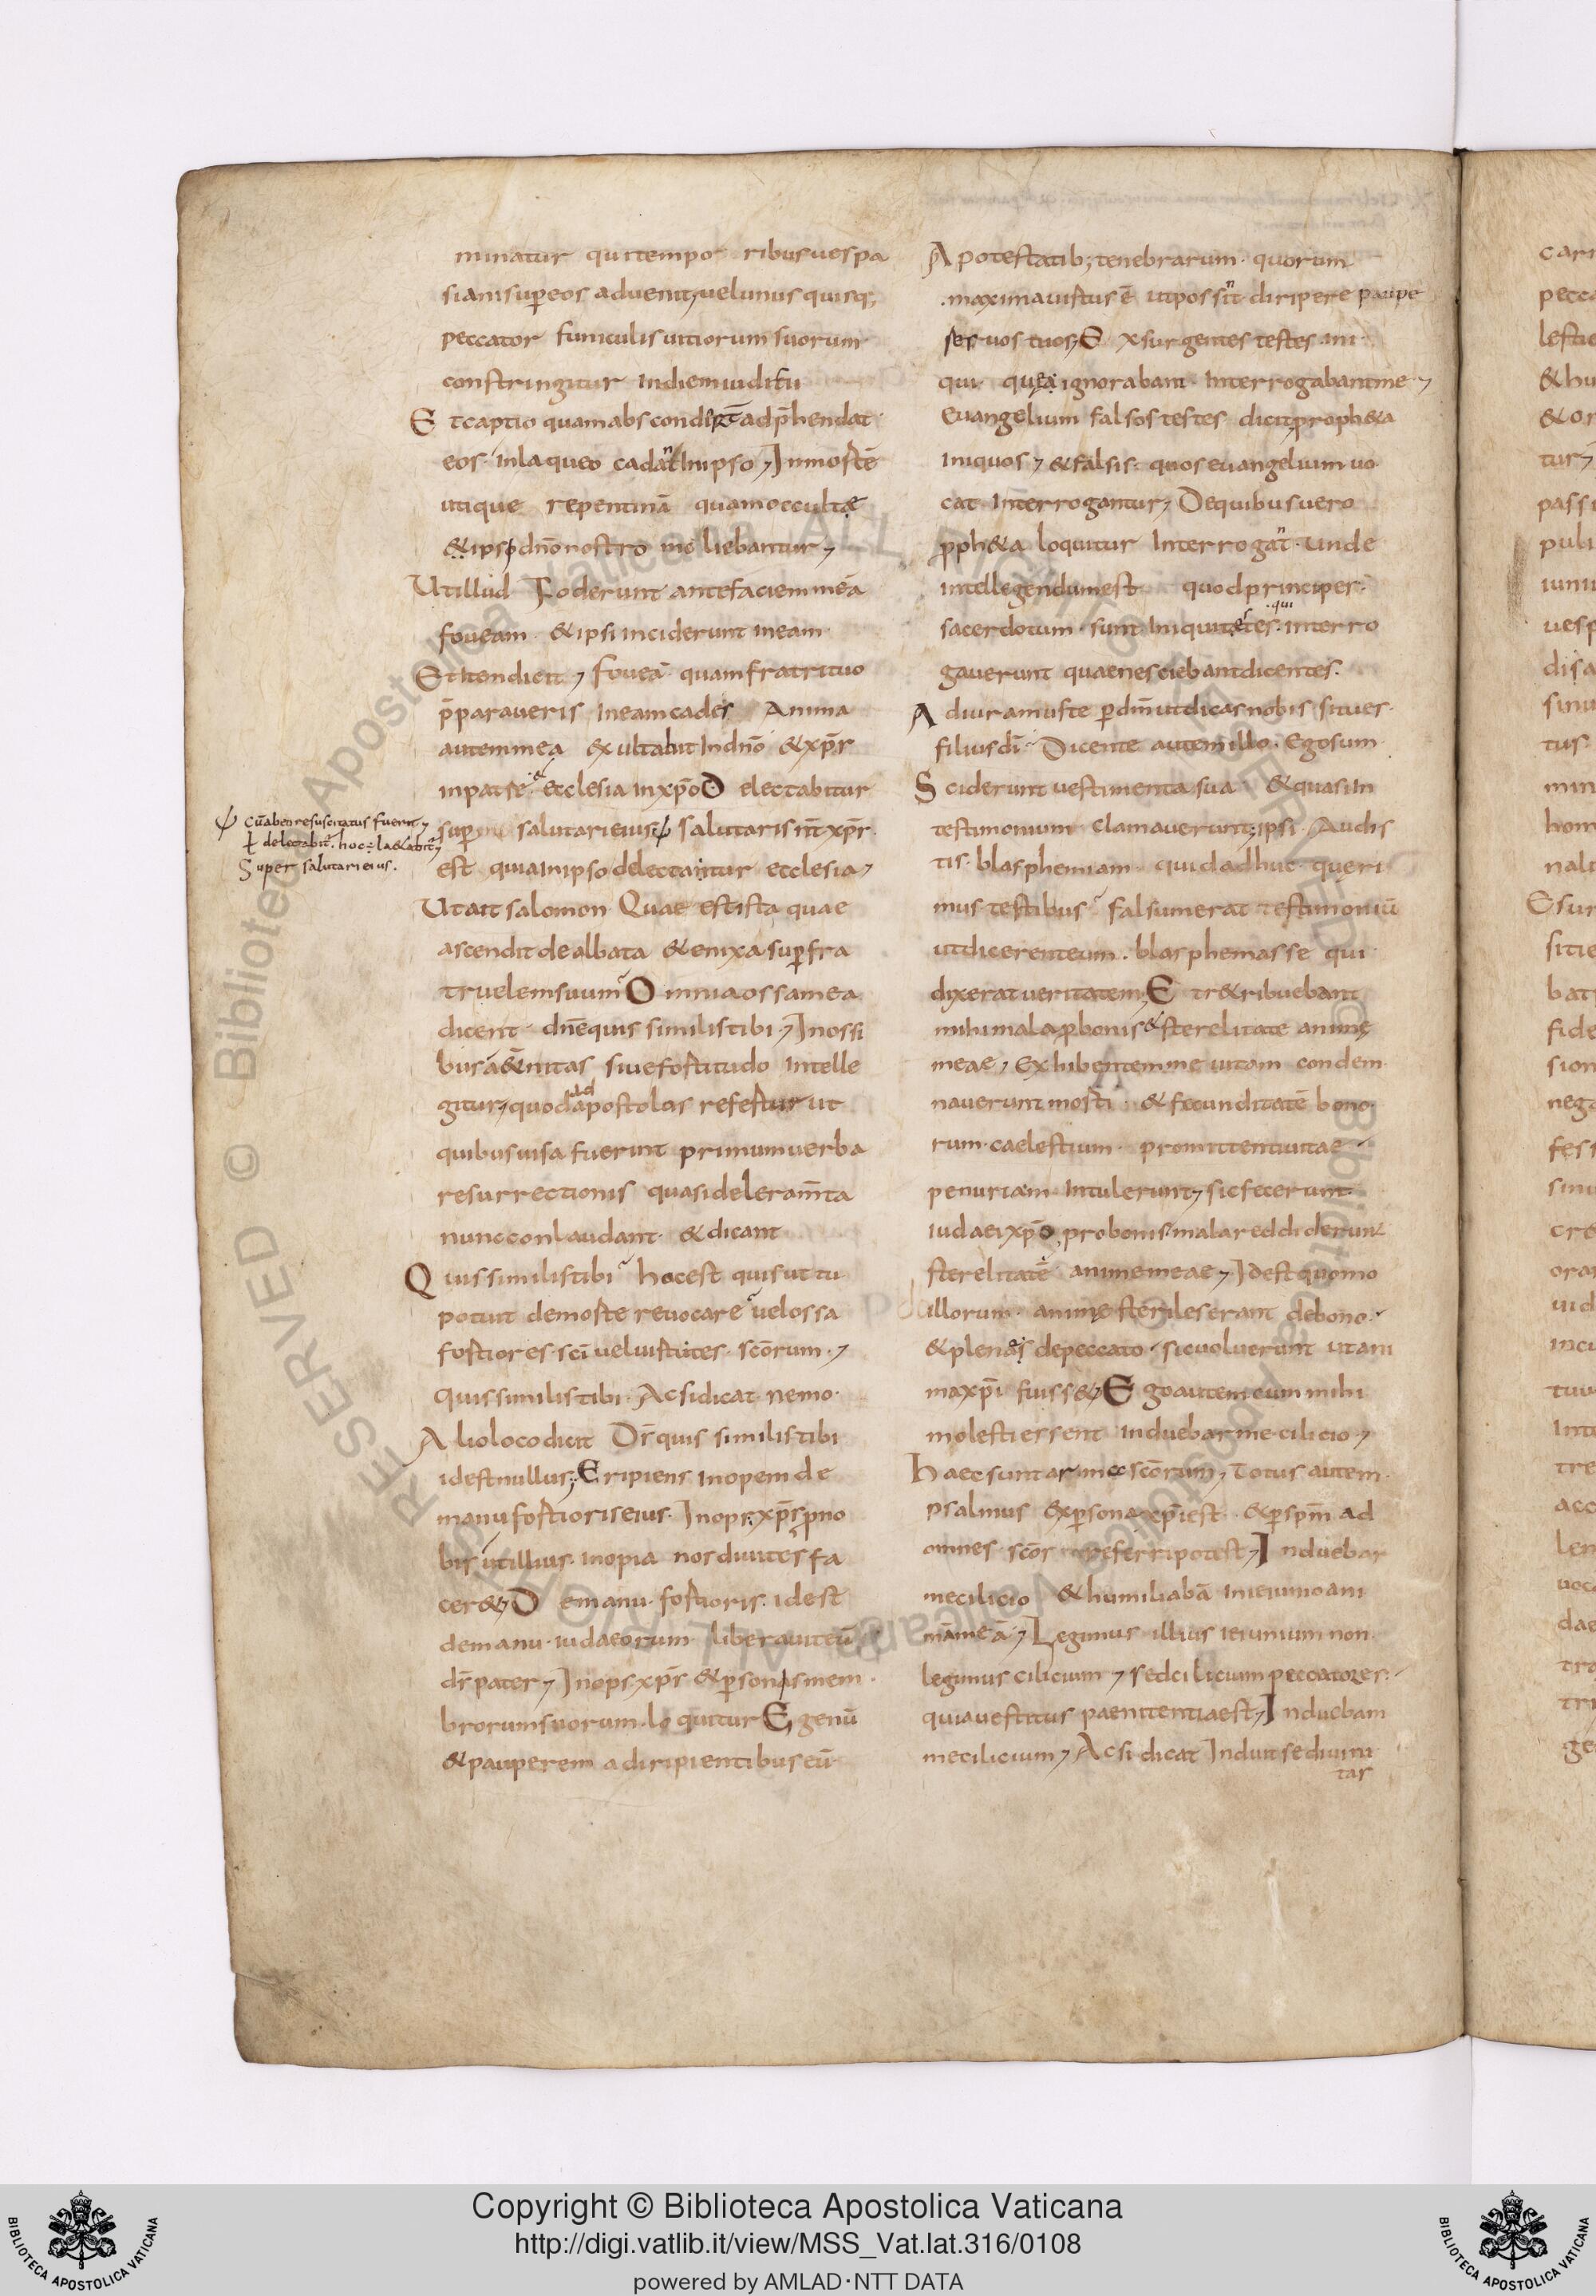 minatur qui tempor ribus uespa
siani sup eos aduenit; uel unusquisq;
peccator funiculis uitiorum suorum
constringitur in die iudicii
Et captio quam abscondert adp̄hendat
eos. in laqueo cadant in ipso; In mortē
utique repentinā quam occultae
& ipsi dn̄o nostro moliebantur;
Ut illud Foderunt ante faciem meā
foueam. & ipsi inciderunt in eam
Et item dicit; foueā quam fratri tuo
p̄paraueris in eam cades Anima
autem mea exultabit in dn̄o & xp̄s
in patre. Ecclesia in xp̄o Delectabitur
super salutari eius ψ salutaris nt̄ xp̄s.
est quia in ipso delectantur ecclesia;
ψ Cū ab eo resuscitatus fuerit;
ł delectabit̄. hoc: laetabit̄;
Super salutari eius.
Ut ait salomon Quae est ista quae
ascendit dealbata & enixa sup fra
truelem suum Omnia ossa mea
dicent. dn̄e quis similis tibi; In ossi
bus aet̄nitas siue fortitudo intelle
gitur; quod ad apostolos refertur ut
quibus uisa fuerint primum uerba
resurrectionis quasi deleram̄ta
nunc conlaudant. & dicant
Quis similis tibi hoc est quis ut tu
potuit de morte reuocare uel ossa
fortiores sc̄i uel uirtutes. sc̄orum.;
Quis similis tibi. Ac si dicat nemo.
Alio loco dicit Ds̄ quis similis tibi
id est nullus; Eripiens inopem de
manu fortioris eius. Inops xp̄s pro no
bis ut illius inopia nos diuites fa
ceret; De manu. fortioris. id est
de manu. iudaeorum. liberauit eū
ds̄ pater; Inops xp̄s & personas mem
brorum suorum. loquitur Egenū
& pauperem a diripientibus eū
A potestatib; tenebrarum. quorum
maxima uirtus ē ut possint diripere paupe
res uos tuos; Exsurgentes testes ini
qui quea ignorabam. Interrogabant me;
Euangelium falsos testes dicit; propheta
iniquos; & falsis: quos euangelium uo
cat. Interrogantur; De quibus uero
ppheta loquitur Interrogant. Unde
intellegendum est quod principes.
sacerdotum. sunt. Iniqui testes. qui interro
gauerunt quae nesciebant dicentes.
Adiuramus te p dm̄ ut dicas nobis si tu es.
filius dī. Dicente autem illo. Ego sum
Sciderunt uestimenta sua & quasi in
testimonium clamauerunt; ipsi. Audis
tis. blasphemiam. quid adhuc queri
mus testibus falsum erat testimoniū
ut dicerent eum. blasphemasse qui
dixerat ueritatem; Et retribuebant
mihi mala p bonis & sterelitate anime
meae; Exhibentem me uitam condem
nauerunt morti. & fecunditatē bono
rum. caelestium. promittenti uitae
penuriam intulerunt; sic fecerunt
iudaei xp̄o; pro bonis. mala reddiderunt
sterelitatē anime meae; Id est quomo
illorum. anime steriles erant de bono.
& plenas de peccato. sic uoluerunt ut ani
ma xp̄i fuisset; Ego autem cum mihi
molesti essent induebar me cilicio;
Haec sunt arma sc̄orum; Totus autem.
psalmus ex persona xp̄i est. & per sp̄m ad
omnes. sc̄os referri potest; Induebar
me cilicio & humiliabā in ieiunio ani
mā meā; Legimus illius ieiunium non
legimus cilicium; sed cilicium peccatores.
quia uestitus paenitentiae st; Induebam
me cilicium; Ac si dicat Induit se diuini
tas
Copyright © Biblioteca Apostolica Vaticana
http://digi.vatlib.it/view/MSS_Vat.lat.316/0108
powered by AMLAD·NTT DATA